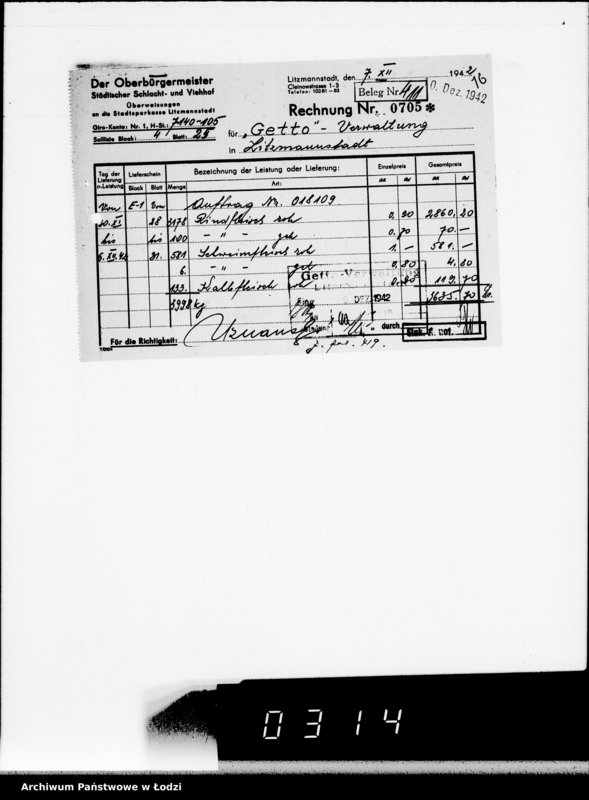 Der Oberbürgermeister
Städtischer Schlacht- und Viehhof
Überweisungen
an die Stadtsparkasse Litzmannstadt
Giro-Konto: Nr. 1, H-St.: 7140-105
Sollliste Block: 4 Blatt: 25
Litzmannstadt, den 7. XII 1942
Clelnowstrasse 1-3
Telefon: 10281-83
Beleg Nr.
0. Dez. 1942
Rechnung Nr. 0705*
für „Getto“ - Verwaltung
in Litzmannstadt
Tag der Lieferung Lieferschein Bezeichnung der Leistung oder Lieferung: Einzelpreis Gesamtpreis
Block Blatt Menge Art:
Von E-1 Von Auftrag Nr. 018109
30. XI 28 3178 Rindfleisch roh 0,90 2860,20
bis bis 100 " " - gek 0,70 70.—
5. XII.42 31. 581 Schweinefleisch roh 1.— 581.—
6. " " - gek 0,80 4.80
133. Kalbfleisch roh 0.90 119.70
3998 kg 3635.70
Getto-Verwaltung
Eing
DEZ. 1942
durch
Für die Richtigkeit:
0314
Archiwum Państwowe w Łodzi